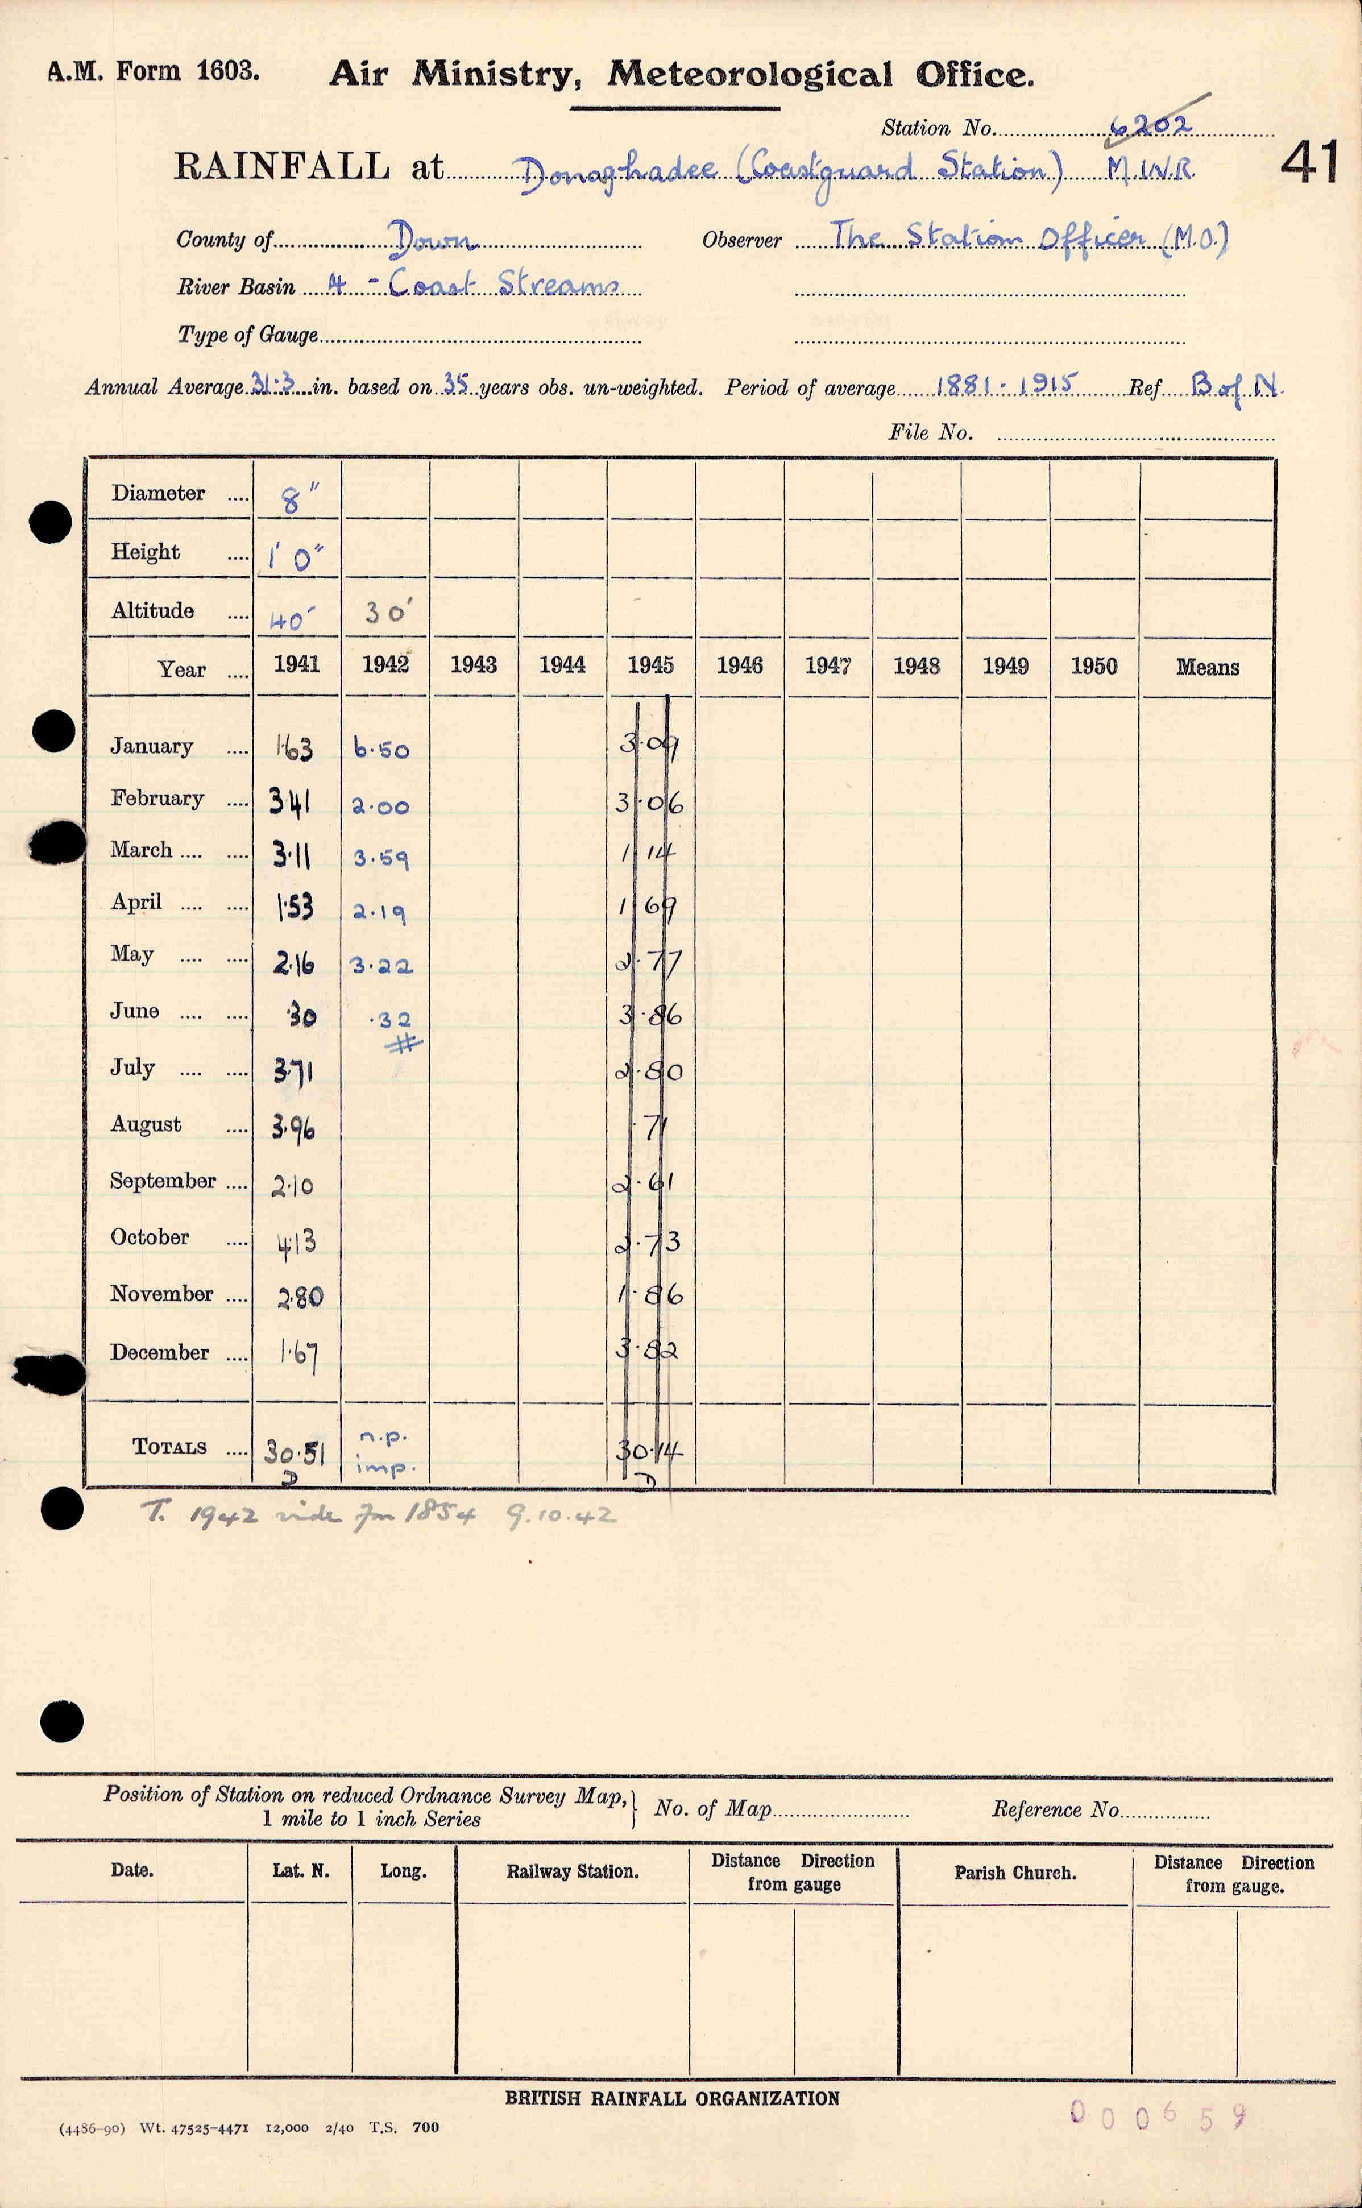 A.M. Form 1603. Air Ministry, Meteorological Office.
Station No. 6202
RAINFALL at Donaghadee (Coastguard Station) M.W.R. 41
County of Down Observer The Station Officer (M.O.)
River Basin 4 - Coast Streams
Type of Gauge
Annual Average 31.3 in. based on 35 years obs. un-weighted. Period of average 1881-1915 Ref B of N.
File No.
Diameter .... 8"
Height .... 1' 0"
Altitude .... 40' 30'
Year .... 1941 1942 1943 1944 1945 1946 1947 1948 1949 1950 Means
January .... 1.63 6.50 3.09
February .... 3.41 2.00 3.06
March .... .... 3.11 3.59 1.14
April .... .... 1.53 2.19 1.69
May .... .... 2.16 3.22 2.77
June .... .... .30 .32 3.86
#
July .... .... 3.71 2.80
August .... 3.96 .71
September .... 2.10 2.61
October .... 4.13 2.73
November .... 2.80 1.86
December .... 1.67 3.82
TOTALS .... 30.51 n.p. imp. 30.14
D D
T. 1942 vide fm 1854 9.10.42
Position of Station on reduced Ordnance Survey Map, } No. of Map Reference No.
1 mile to 1 inch Series
Date. Lat. N. Long. Railway Station. Distance Direction from gauge Parish Church. Distance Direction from gauge.
BRITISH RAINFALL ORGANIZATION
(4486-90) Wt. 47525-4471 12,000 2/40 T.S. 700
000659